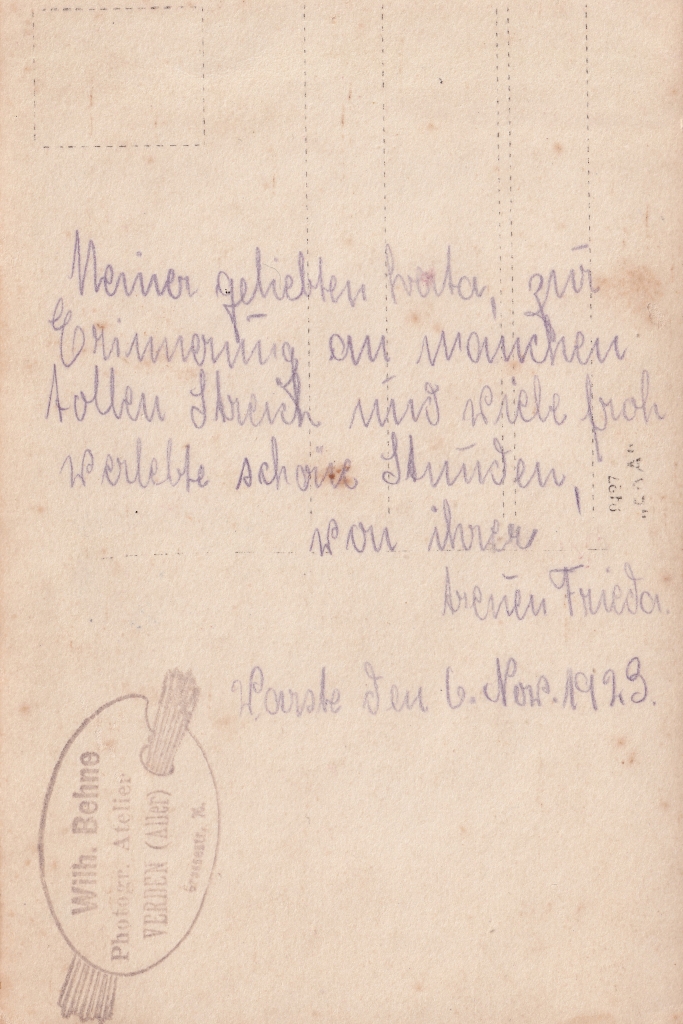 Meiner geliebten Herta, zur
Erinnerung an manchen
tollen Streich und viele froh
verlebte schöne Stunden,
von ihrer
treuen Frieda.
den 6. Nov. 1923.
Wilh. Behne
Photogr. Atelier
VERDEN (Aller)
Grossestr.